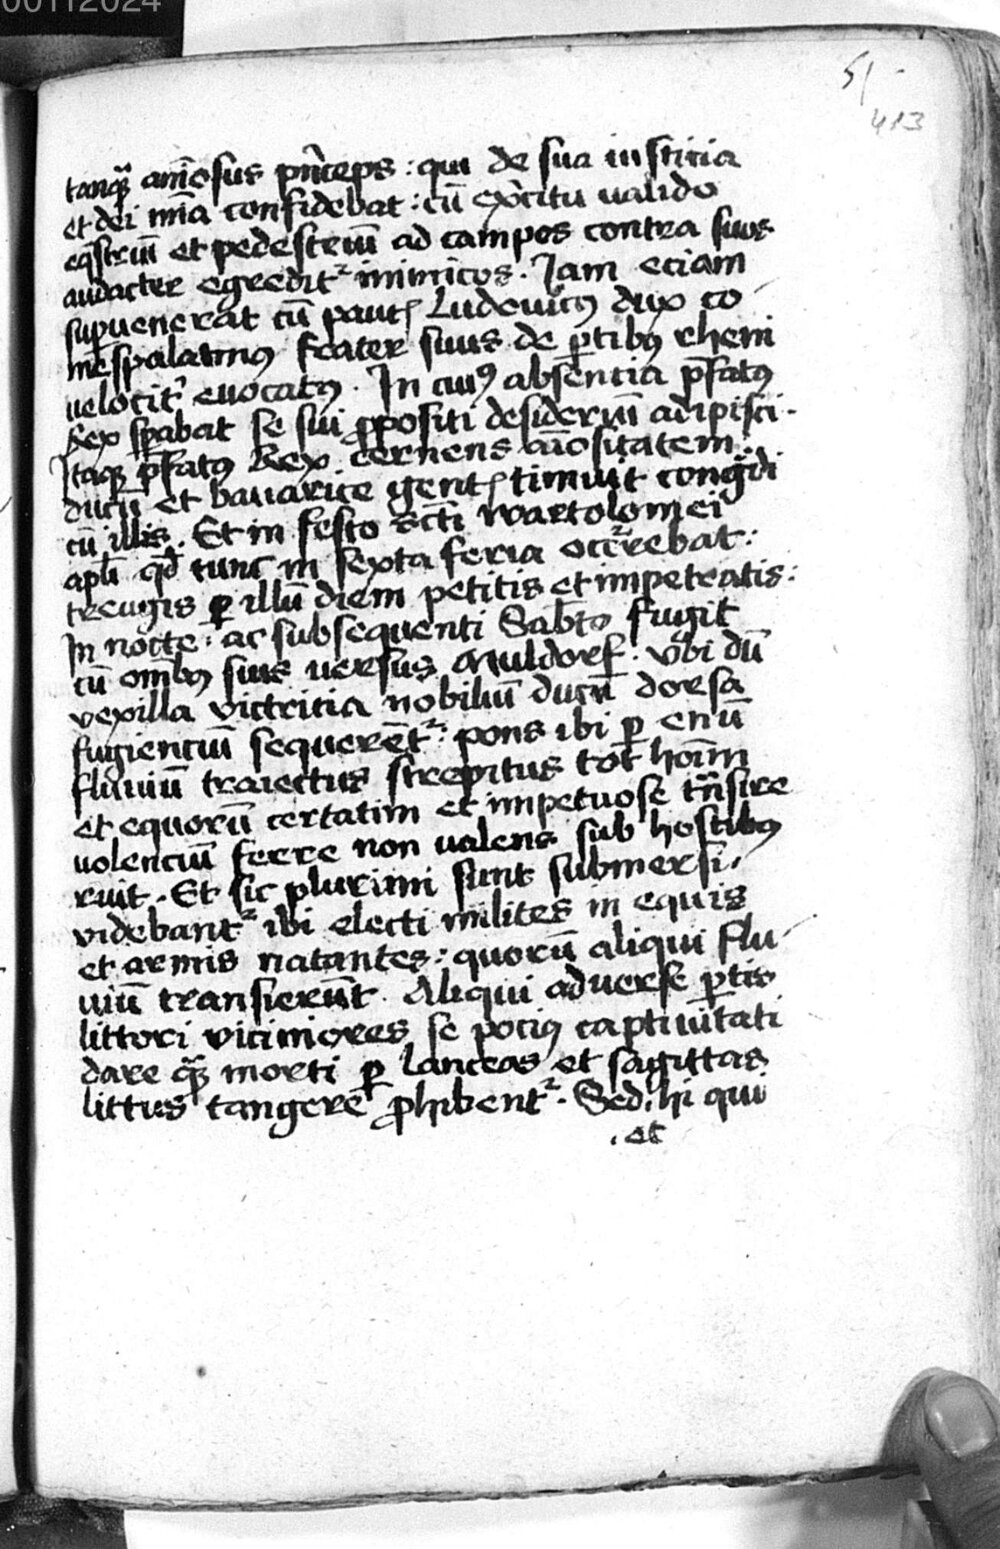 00112024
51
413
tanqȝ aīosus pn̄ceps : qui de sua iusticia
et dei mīa confidebat : cū exc̄itu ualido
eq̄striū et pedestriū ad campos contra suos
audacter egredit² inimicos . Jam eciam
sup̱uenerat cū paucꝭ Ludouicꝰ dux co
mespalatinꝰ frater suus de ꝑtibꝰ rheni
uelocit̉ euocatꝰ . In cuiꝰ absencia p̄fatꝰ
Rex sꝑabat se sui ꝓpositi desideriū adipisci .
Itaqȝ p̄fatꝰ Rex cernens aīositatem
ducū et bauarice gentꝭ timuit cong̊di
cū illis . Et in festo sc̄ti Wartolomei
apl̄i qd̄ tunc in sexta feria occ²rebat :
treugis ꝑ illū diem petitis et impetratis :
In nocte : ac subsequenti Sab̄to fugit
cū om̄ibꝰ suis uersus Muldorf . vbi dū
vexilla victricia nobiliū ducū dorsa
fugienciū sequerēt² : pons ibi ꝑ enū
fluuiū traiectus strepitus tot hoīm
et equorū certatim et impetuose tn̄sire
uolenciū ferre non ualens sub hostibꝰ
ruit . Et sic plurimi sunt submersi .
videbant² ibi electi milites in equis
et armis natantes : quorū aliqui flu
uiū transierūt . Aliqui aduerse ꝑtis
littori viciniores se pociꝰ captiuitati
dare qȝ morti ꝑ lanceas et sagittas
littus tangere ꝓhibent² . Sed hi qui
. et